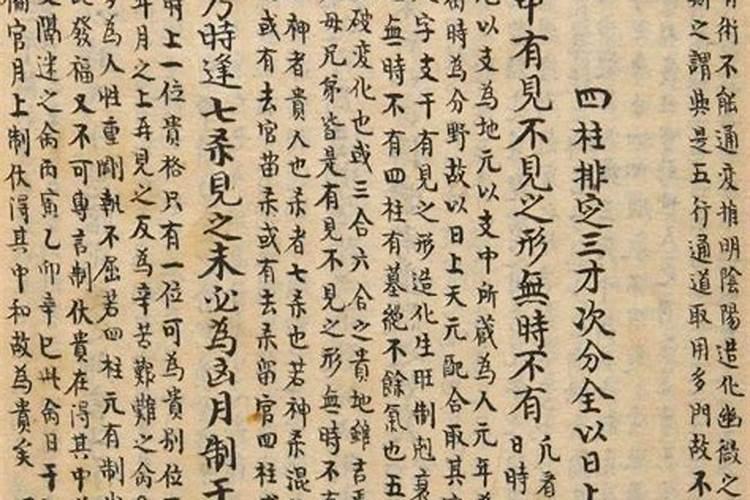 有術不能通変推明陰陽造化幽微之
斯之謂與是五行通道取用多門故不
四柱排定三才次分全以日上
中有見不見之形無時不有
凢看
日時
元以支為地元以支中所蔵為人元年為
時為分野故以日上天元配合取其
字支干有見之形造化生旺制剋衰
無時不有四柱有墓絶不餘氣也五
破変化也或三合六合之貴地雖吉
母兄弟皆是有見不見之形無時不有
神者貴人也杀者七杀也若神杀混
或有去官畄杀或有去杀畄官四柱
乃時逢七杀見之未必為凶月制干
時上一位貴格只有一位可為貴別位
年月之上再見之反為辛苦艱難之命
為人性重剛執不屈若四柱元有制
發福又不可專言制伏貴在得其中
隔迷之命丙寅乙卯辛巳此命日干
官月上制伏得其中和故為貴矣